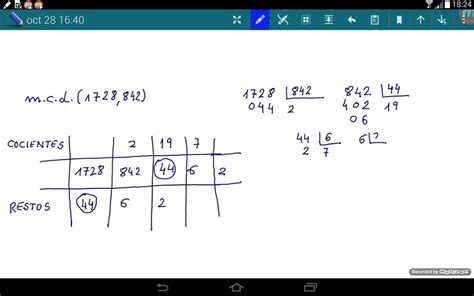 oct 28 16:40
18:24
m.c.d. (1728, 842)
1728 842
044 2
842 44
402 19
06
44 6
2 7
6 2
COCIENTES 2 19 7
1728 842 44 6 2
RESTOS 44 6 2